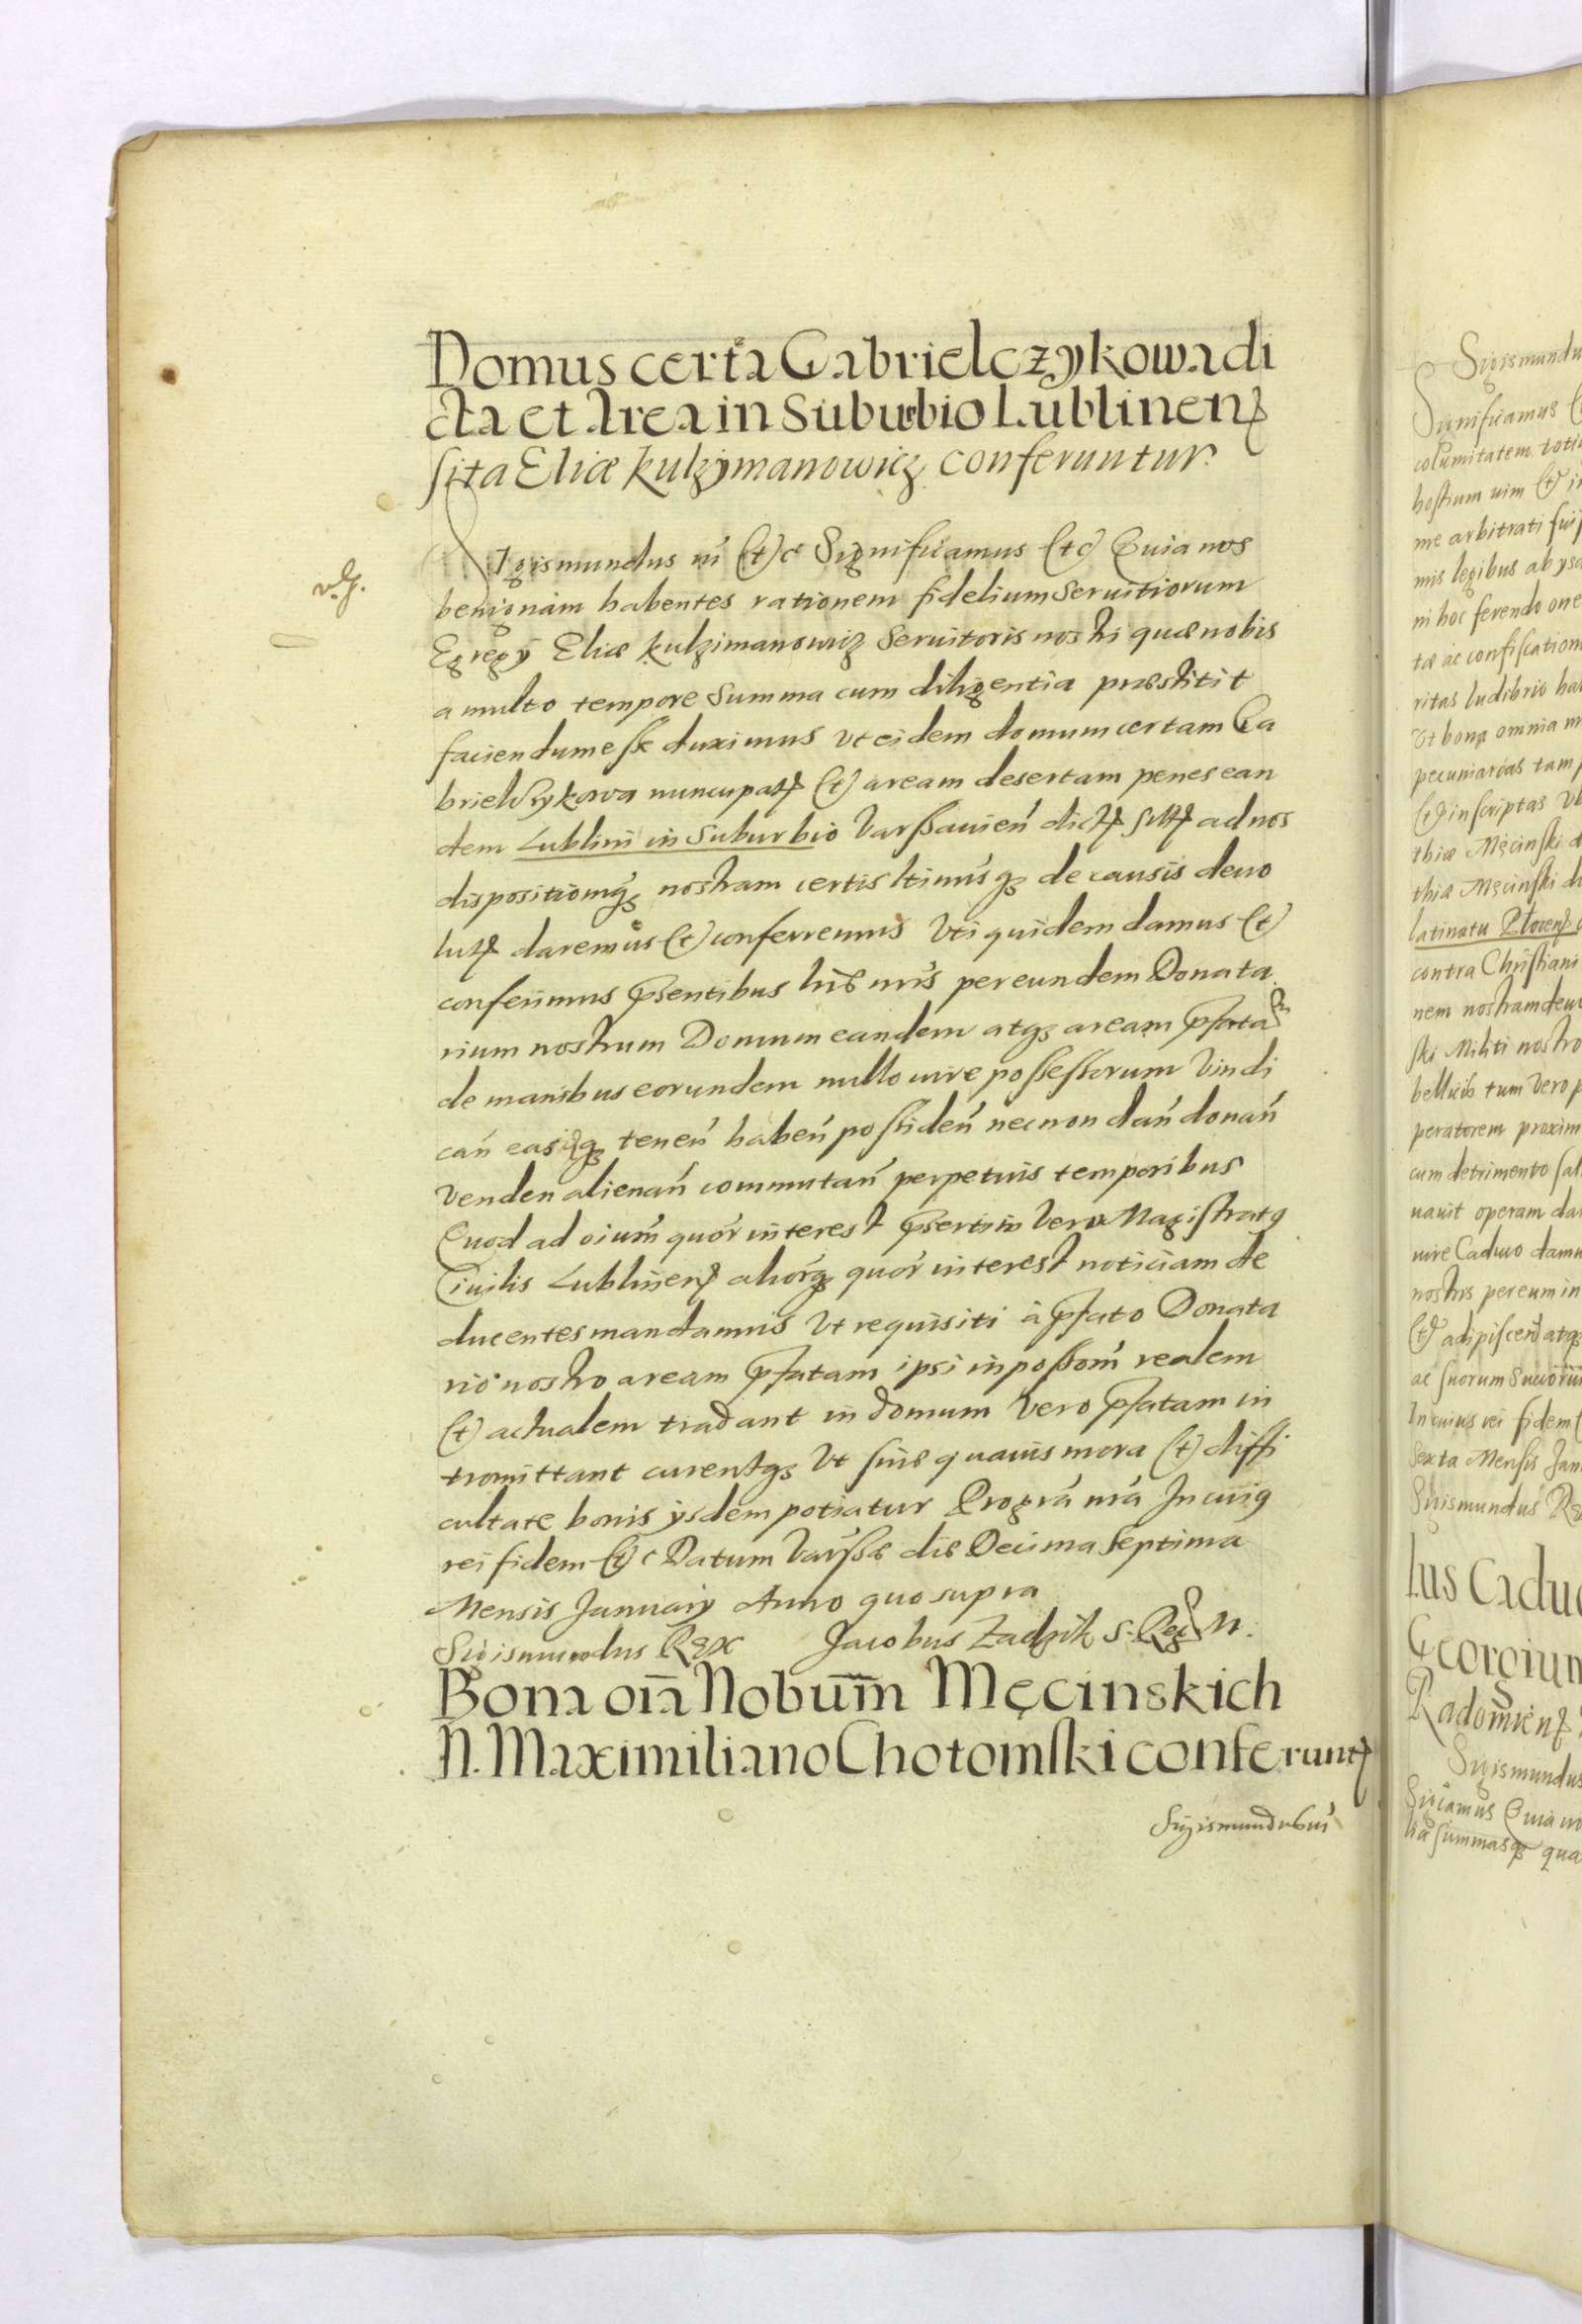 Domus certa Gabrielczykowa di
cta et Area in Suburbio Lublinen
sita Eliæ Kulzymanowicz conferuntur.
Sigismundus iii etc Significamus etc Quia nos
benignam habentes rationem fidelium Seruitiorum
Egregÿ Eliæ Kulzimanowicz Seruitoris nostri quæ nobis
a multo tempore Summa cum diligentia præstitit
faciendum esse duximus vt eidem domum certam Ga
brielczykowa nuncupat et aream desertam penes ean
dem Lublini in Suburbio Varssauien dict sit ad nos
dispositionemq nostram certis ltimisq de causis deuo
lut daremus et conferremus Vti quidem damus et
conferimus pñsentibus lris nris per eundem Donata
rium nostrum Domum eandem atq aream pfata
de manibus eorundem nullo iure possessorum Vindi
can easq tenen haben possiden necnon dan donan
Venden alienan commutan perpetuis temporibus
Quod ad oium quor interest psertim Vero Magistratq
Ciuilis Lublinen aliorq quor interest noticiam de
ducentes mandamus Vt requisiti à pfato Donata
rio nostro aream pfatam ipsi in possom realem
et actualem tradant in domum Vero pfatam in
tromittant curentq Vt sine quauis mora et diffi
cultate bonis ÿsdem potiatur Pro gra nra In cuiq
rei fidem etc Datum Varssæ die Decima Septima
Mensis Januarÿ Anno quo supra
Sigismundus Rex Jacobus Zadzik S. Reg M.
Bona oia Nobum Męcinskich
N. Maximiliano Chotomski conferunt
Sigismundus iii
Sigismundu
Significamus
columitatem toti
hostium uim et i
me arbitrati fui
mis legibus ab ysd
ni hoc ferendo one
tæ ac confiscation
ritas ludibrio ha
Vt bona omnia m
pecuniarias tam
et inscriptas Vb
thiæ Męcinski d
thiæ Męcinski d
latinatu Plocen
contra Christiani
nem nostram deu
ski Militi nostro
bellicis tum Vero p
peratorem proxim
cum detrimento sal
nauit operam da
iure Caduco damu
nostris per eum in
et adipiscen atq
ac suorum Succoru
In cuius rei fidem
Sexta Mensis Jan
Sigismundus Re
Ius Caduc
Georgium
Radomien
Sigismundus
Sigcamus Quia no
lia summasq qua